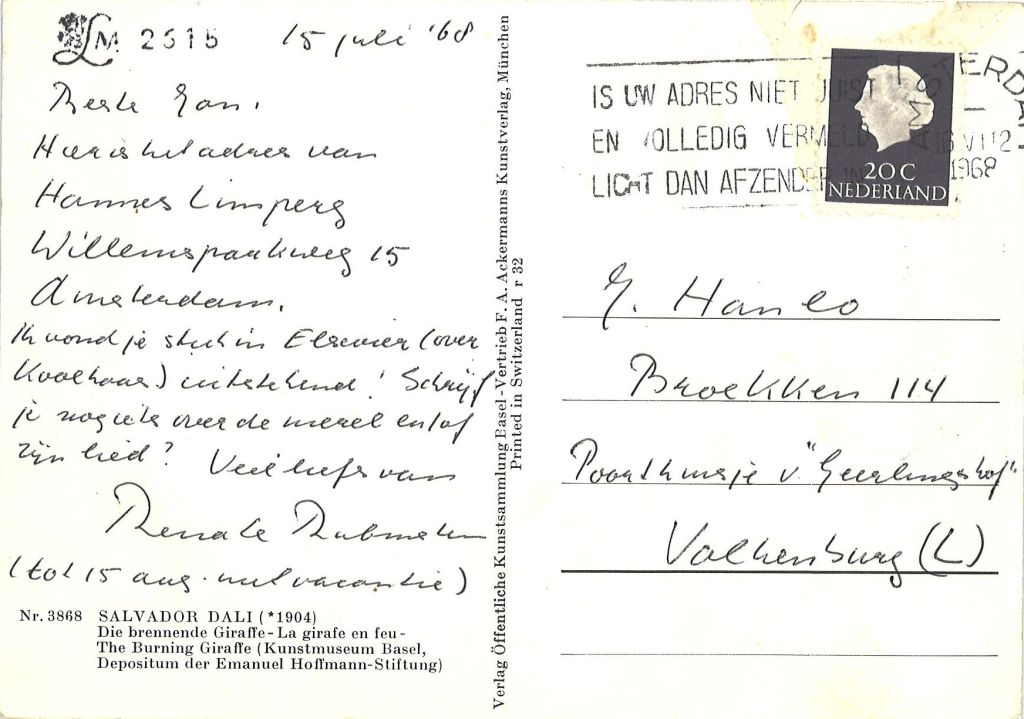 LM 2515
15 juli '68
Beste Jan.
Hier is het adres van
Hannes Limperg
Willemsparkweg 15
Amsterdam.
Ik vond je stuk in Elsevier (over
Koolhaas) uitstekend! Schrijf
je nog iets over de merel en/of
zijn lied? Veel liefs van
Renate Rubinstein
(tot 15 aug. met vacantie)
Nr. 3868 SALVADOR DALI (*1904)
Die brennende Giraffe - La girafe en feu -
The Burning Giraffe (Kunstmuseum Basel,
Depositum der Emanuel Hoffmann-Stiftung)
Verlag Öffentliche Kunstsammlung Basel - Vertrieb F. A. Ackermanns Kunstverlag, München
Printed in Switzerland r 32
IS UW ADRES NIET JUIST
EN VOLLEDIG VERMELD
LICHT DAN AFZENDER IN
AMSTERDAM
16 VII 12
1968
20 C
NEDERLAND
J. Hanlo
Broekhem 114
Poorthuisje v "Geerlingshof"
Valkenburg (L)